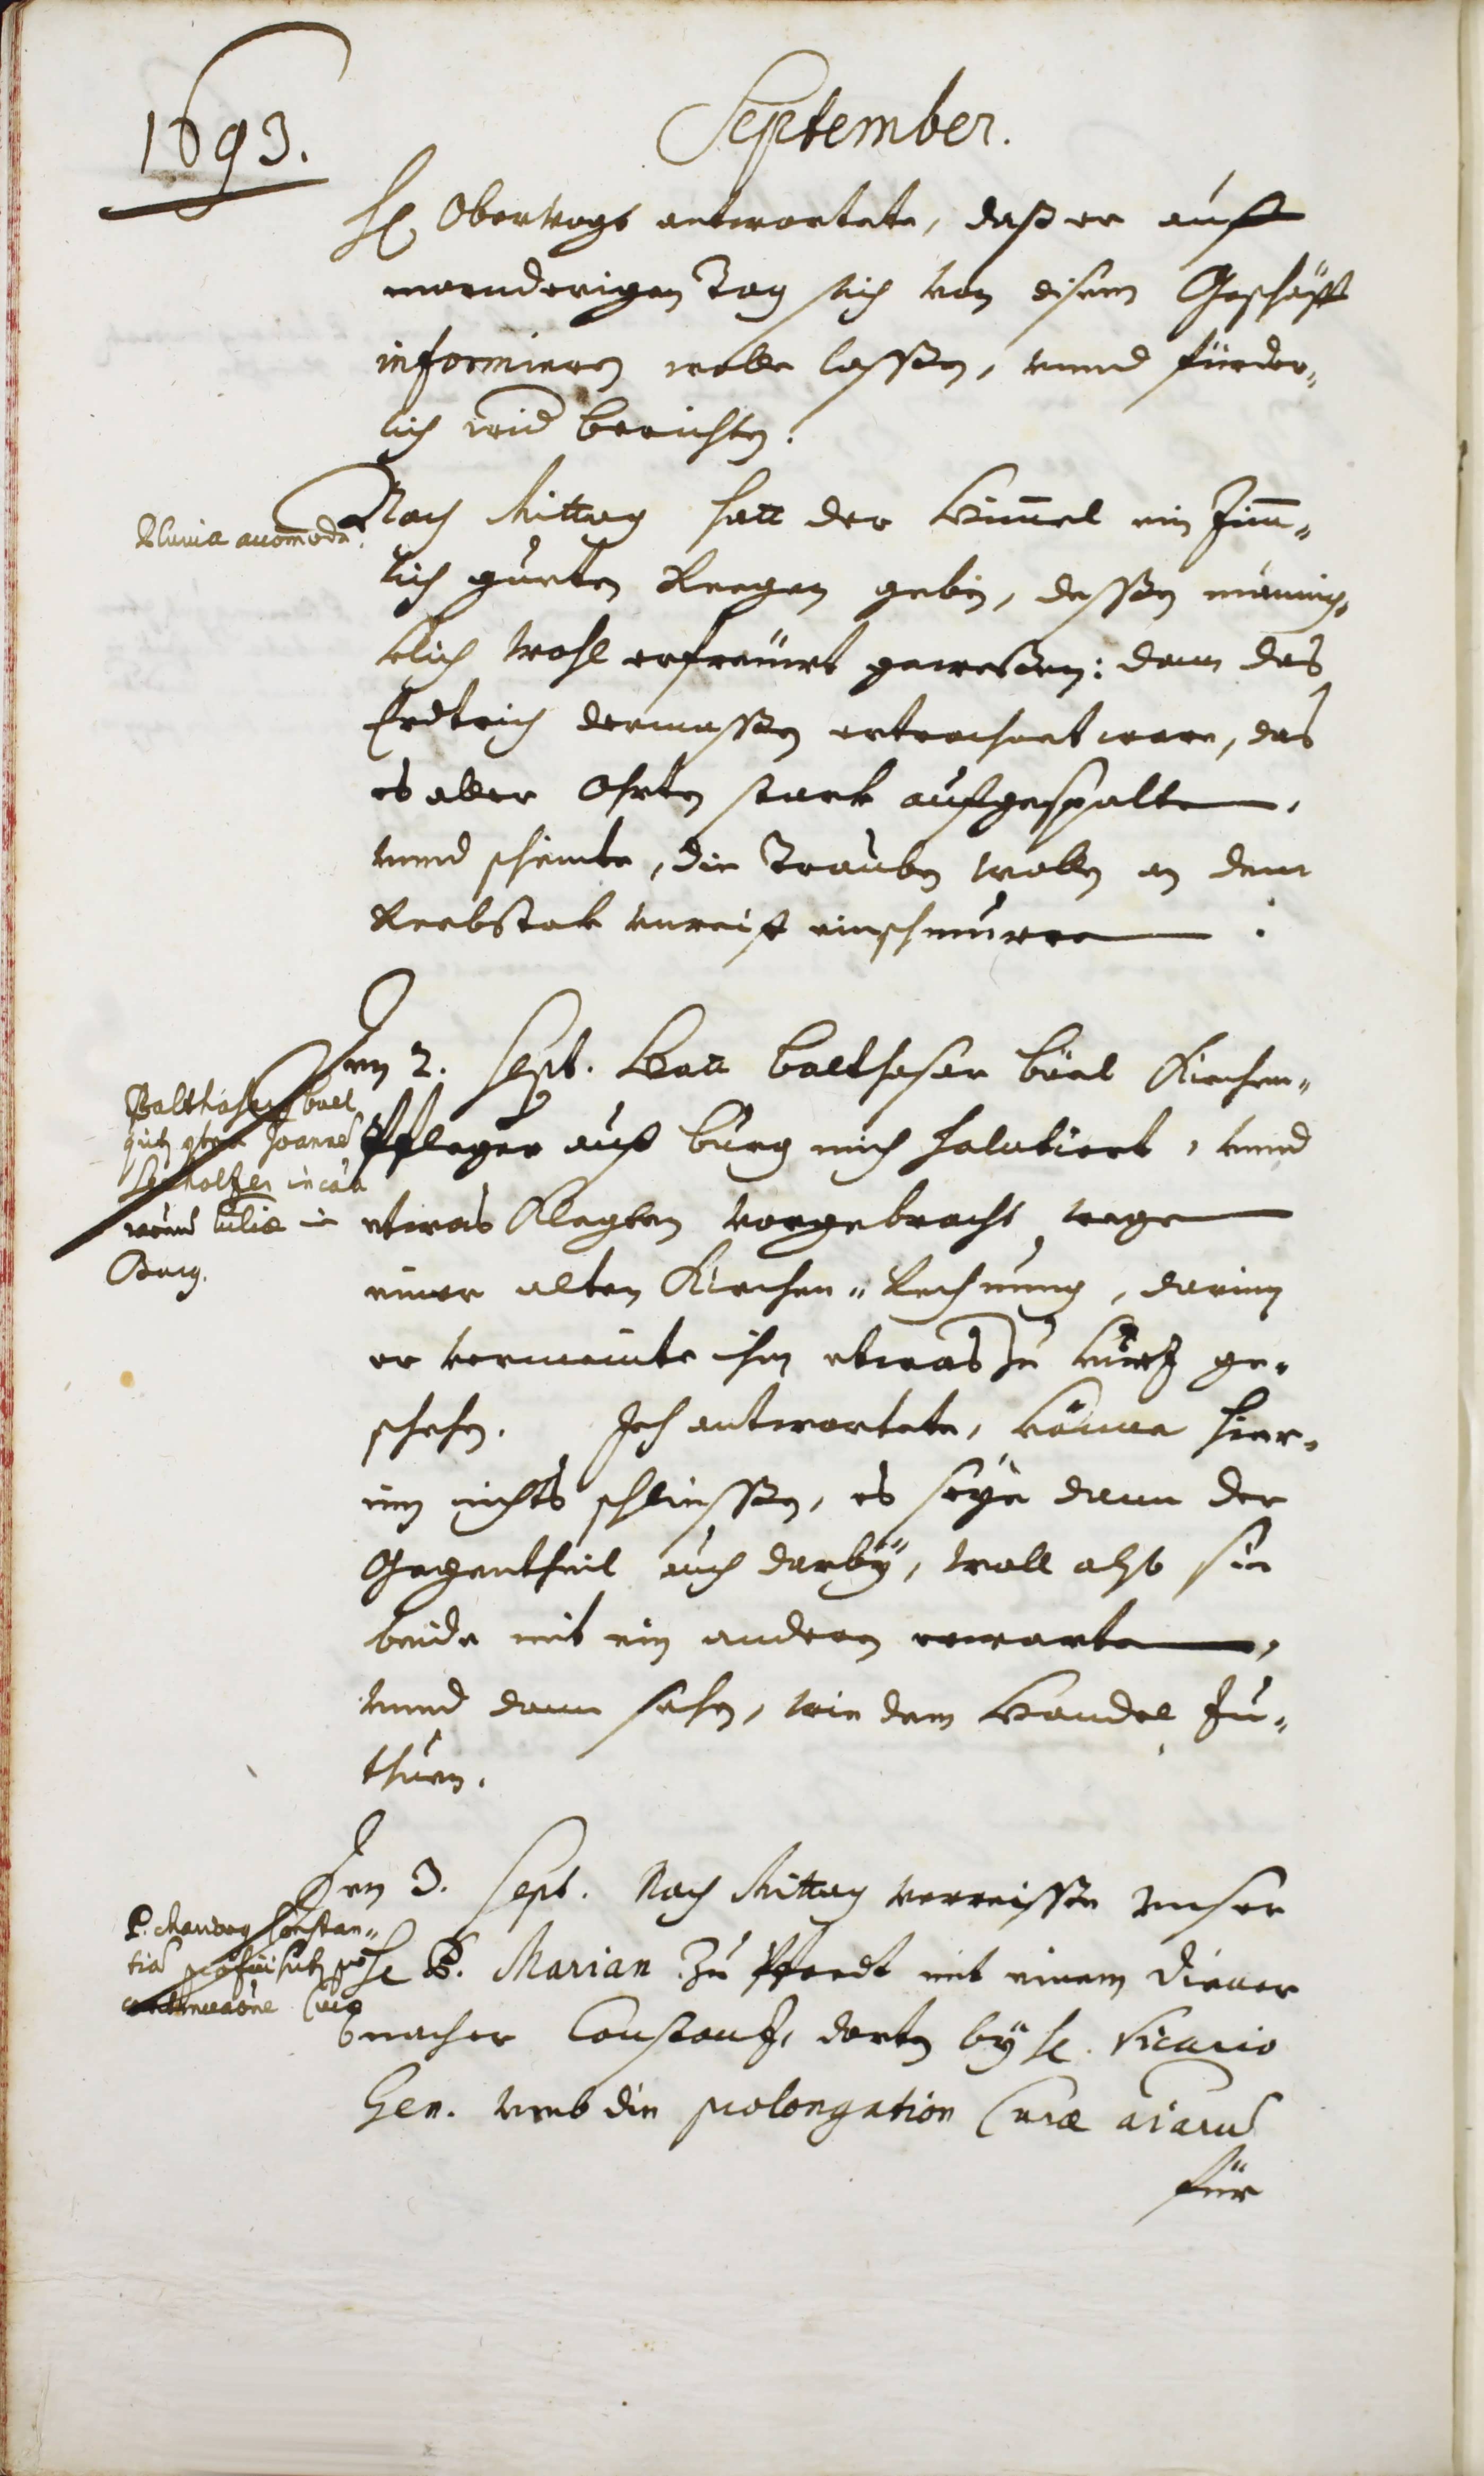 1693.
September.
H. Obervogt antwortete, daß er auff
mornderigen Tag sich von disem Geschäfft
informieren wolle lassen, unnd fürder„
lich wid berichten.
Pluvia accom̄oda.
Nach Mittag hatt der Him̄el ein zim̄„
lich guoten Reegen geben, dessen mäning„
klich wohl erfreüwt gewesen: dann das
Erdtrich dermassen ertrochnet ware, das
es aller Ohrten starck auffgespalten,
unnd scheinte, die Trauben wollen an dem
Reebstock unreiff einschmurren.
Balthasar büel
Joannē
in
Burg.
Den 2. Sept. Hatt Balthasar büel Kirchen„
Pfleger auß burg mich salutiert, unnd
etwas Klegten vorgebracht wegen
einer alten Kirchen„Rechnung, darinn
er vermeinte ihm etwas zu kurtz ge„
schehen. Ich antwortete, könne hier„
inn nichts schliessen, es seye dann der
Gegentheil auch darbÿ, woll also sie
beide mit ein anderen erwarten,
unnd dann sehen, wie dem Handel zu„
thuon.
P. Marianq Constan„
tiā
Curæ
Den 3. Sept. Nach Mittag verreisste unser
H. P. Marian zu Pferdt mit einem Diener
nacher Constantz, dorten bÿ H. Vicario
Gen. umb die prolongation Curæ aiarū
für